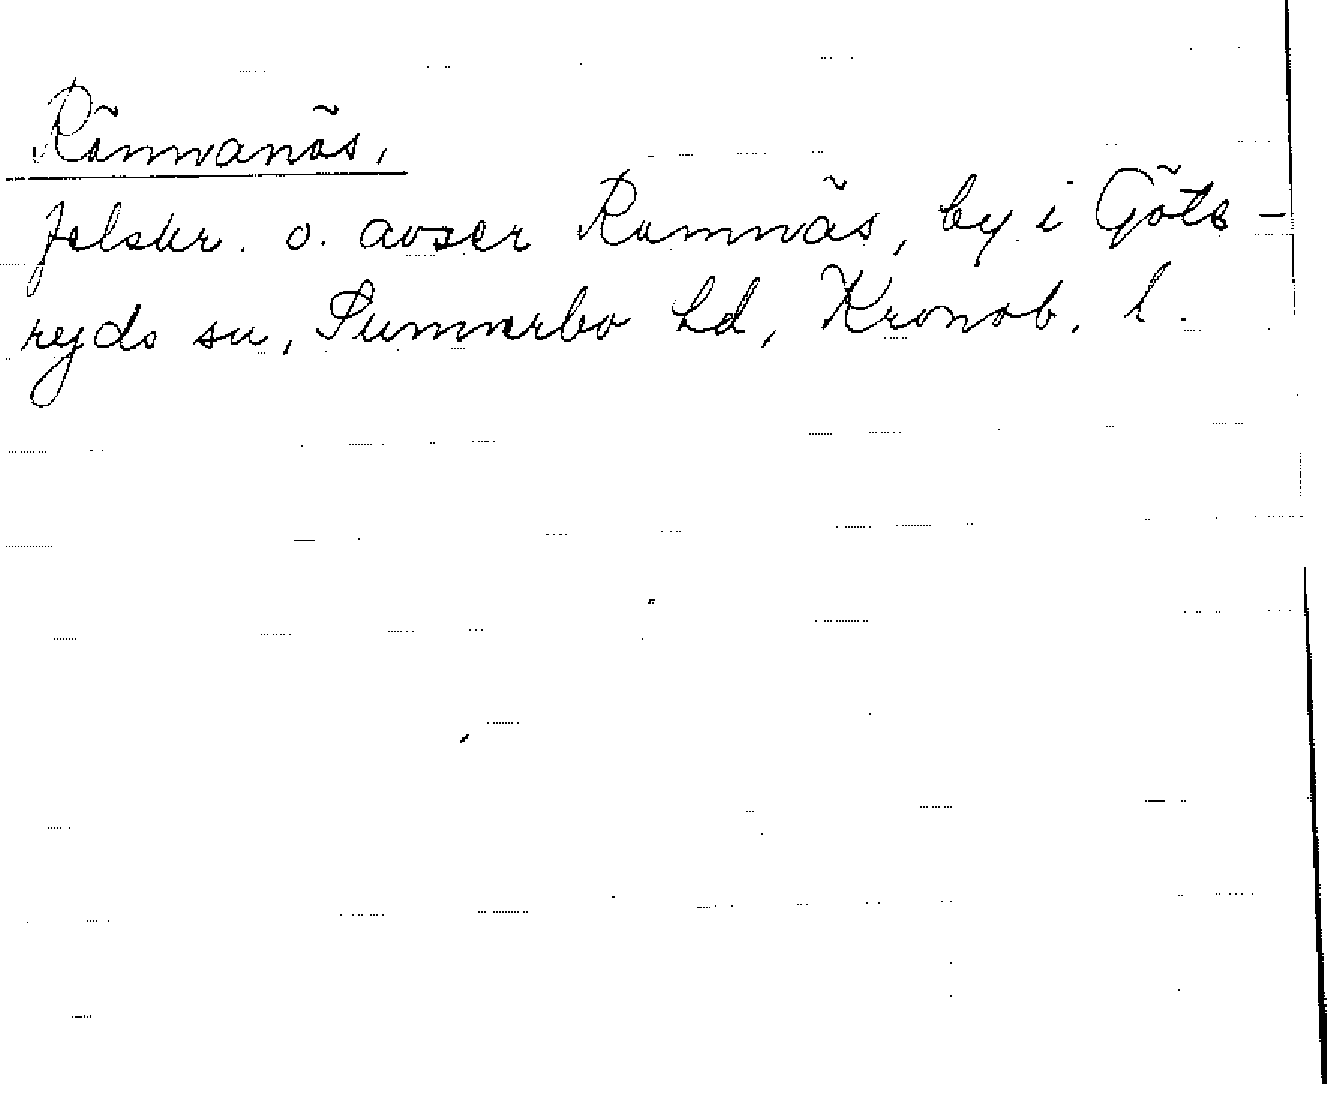 Rönnanäs,
felskr. o. avser Ramnäs, by i Göte-
ryds sn, Sunnerbo hd, Kronob. l.